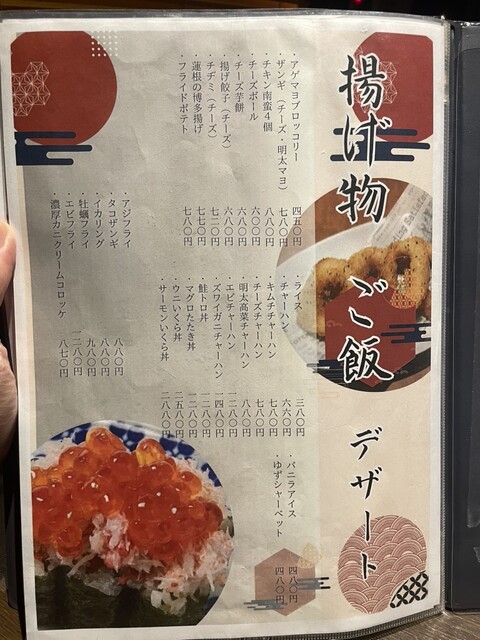 揚げ物 ご飯 デザート
・アゲマヨブロッコリー 四五〇円
・ザンギ（チーズ・明太マヨ） 七八〇円
・チキン南蛮4個 八八〇円
・チーズボール 六〇〇円
・チーズ芋餅 六八〇円
・揚げ餃子（チーズ） 六八〇円
・チヂミ（チーズ） 七二〇円
・蓮根の博多揚げ 七七〇円
・フライドポテト 七八〇円
・アジフライ
・タコザンギ
・イカリング
・牡蠣フライ
・エビフライ
・濃厚カニクリームコロッケ
八八〇円
八八〇円
九八〇円
一二八〇円
八七〇円
・ライス 三八〇円
・チャーハン 六六〇円
・キムチチャーハン 七八〇円
・チーズチャーハン 七八〇円
・明太高菜チャーハン 八八〇円
・エビチャーハン 一二八〇円
・ズワイガニチャーハン 一四八〇円
・鮭トロ丼 一二八〇円
・マグロたたき丼 一二八〇円
・ウニいくら丼 二五八〇円
・サーモンいくら丼 二八八〇円
・バニラアイス 四八〇円
・ゆずシャーベット 四八〇円